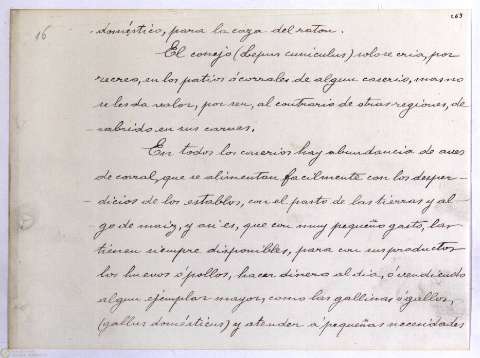 16
263
doméstico, para la caza del raton.
El conejo (Lepus cuniculus) solo se cria, por
recreo, en los patios ó corrales de algun caserio, mas no
se les da valor, por ser, al contrario de otras regiones, de-
sabrido en sus carnes.
En todos los caserios hay abundancia de aves
de corral, que se alimentan facilmente con los desper-
dicios de los establos, con el pasto de las tierras y al-
go de maiz, y asi es, que con muy pequeño gasto, las
tienen siempre disponibles, para con sus productos
los huevos ó pollos, hacer dinero al dia, ó vendiendo
algun ejemplar mayor, como las gallinas ó gallos,
(gallus domésticus) y atender á pequeñas necesidades